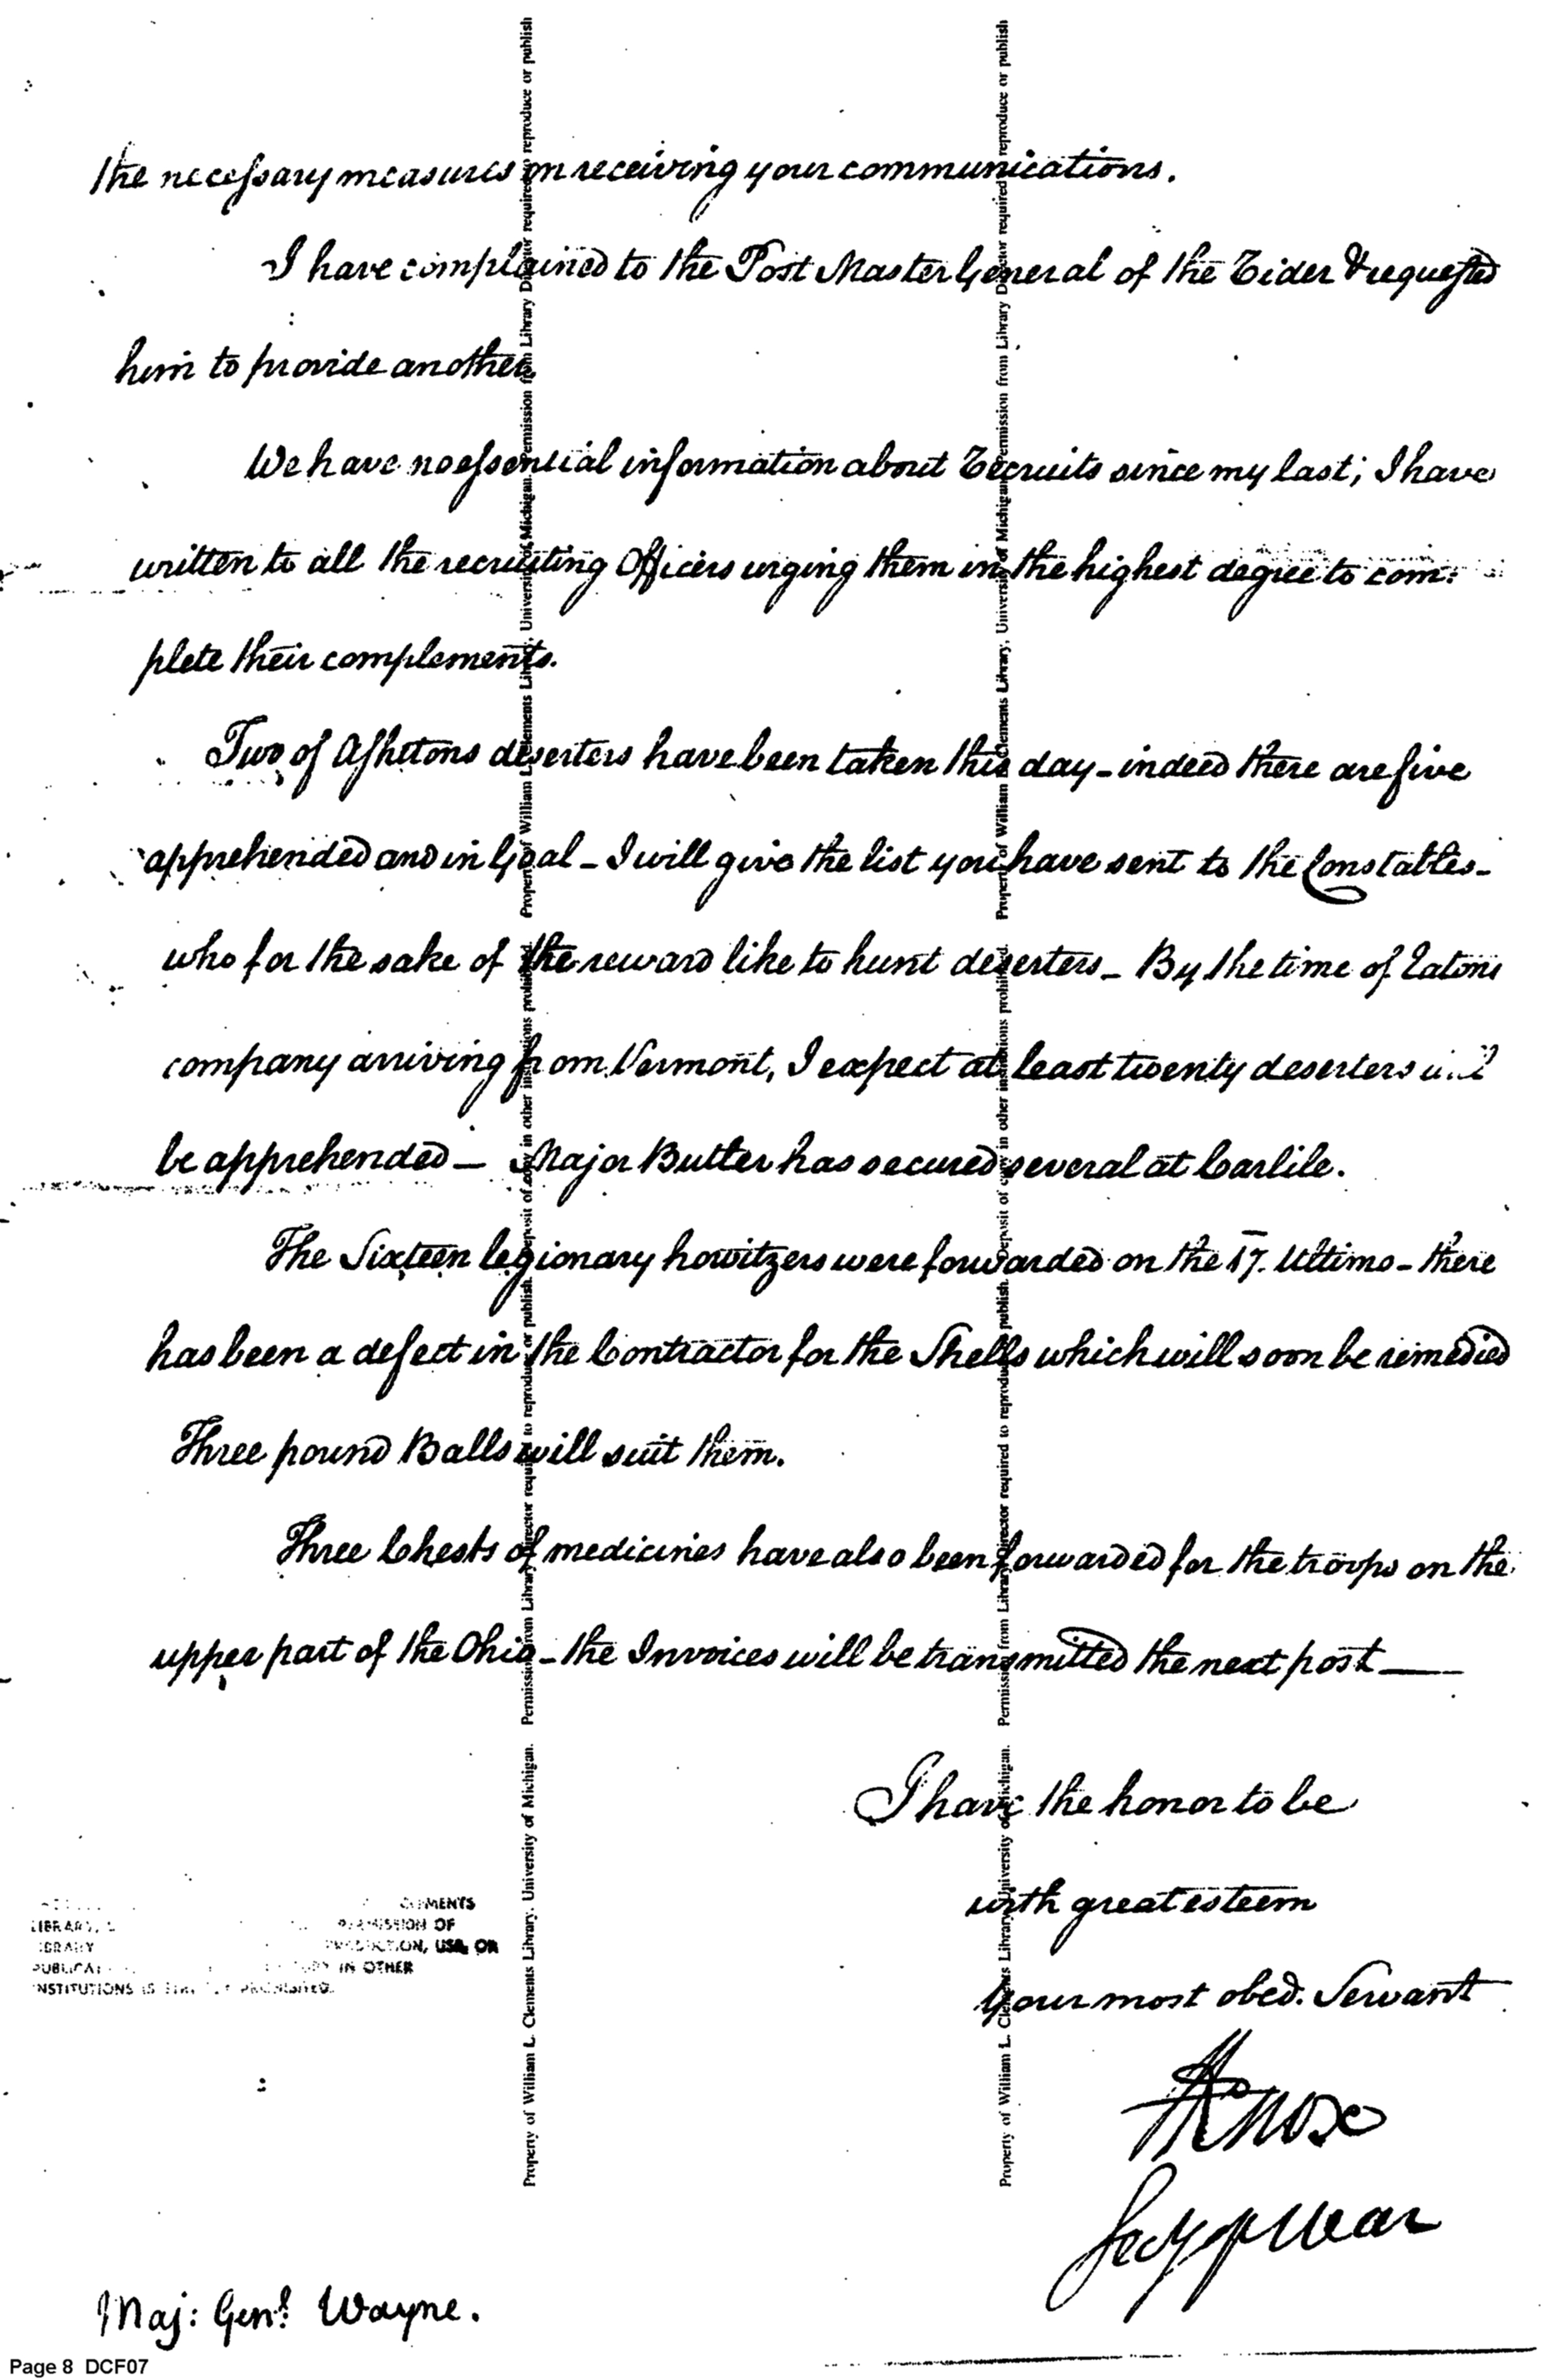 the necessary measures on receiving your communications.
I have complained to the Post Master General of the Rider & requested
him to provide another.
We have no essential information about Recruits since my last; I have
written to all the recruiting Officers urging them in the highest degree to com:
plete their complements.
Two of Ashtons deserters have been taken this day - indeed there are five
apprehended and in Goal - I will give the list you have sent to the Constables -
who for the sake of the reward like to hunt deserters - By the time of Eatons
company arriving from Vermont, I expect at least twenty deserters will
be apprehended - Major Butler has secured several at Carlile.
The Sixteen legionary howitzers were forwarded on the 17. Ultimo - there
has been a defect in the Contractor for the Shells which will soon be remedied
Three pound Balls will suit them.
Three Chests of medicines have also been forwarded for the troops on the
upper part of the Ohio - the Invoices will be transmitted the next post -
I have the honor to be
with great esteem
Your most obed. Servant
HKnox
Secy of War
Maj: Genl. Wayne.
Page 8 DCF07
Property of William L. Clements Library, University of Michigan. Permission from Library Director required to reproduce or publish. Deposit of copy in other institutions prohibited. Property of William L. Clements Library, University of Michigan. Permission from Library Director required to reproduce or publish
Property of William L. Clements Library, University of Michigan. Permission from Library Director required to reproduce or publish. Deposit of copy in other institutions prohibited. Property of William L. Clements Library, University of Michigan. Permission from Library Director required to reproduce or publish
LIBRARY,
OF
USE, OR
IN OTHER
INSTITUTIONS IS PROHIBITED.